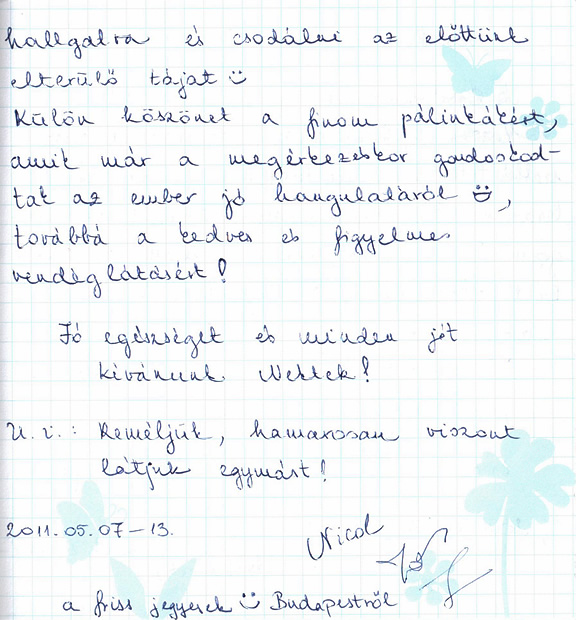 hallgatva és csodálni az előttünk
elterülő tájat ü
Külön köszönet a finom pálinkákért,
amik már a megérkezéskor gondoskod-
tak az ember jó hangulatáról ü,
továbbá a kedves és figyelmes
vendéglátásért!
Jó egészséget és minden jót
kívánunk Nektek!
U. i.: Reméljük, hamarosan viszont
látjuk egymást!
2011.05.07-13.
Nicol
a friss jegyesek ü Budapestről